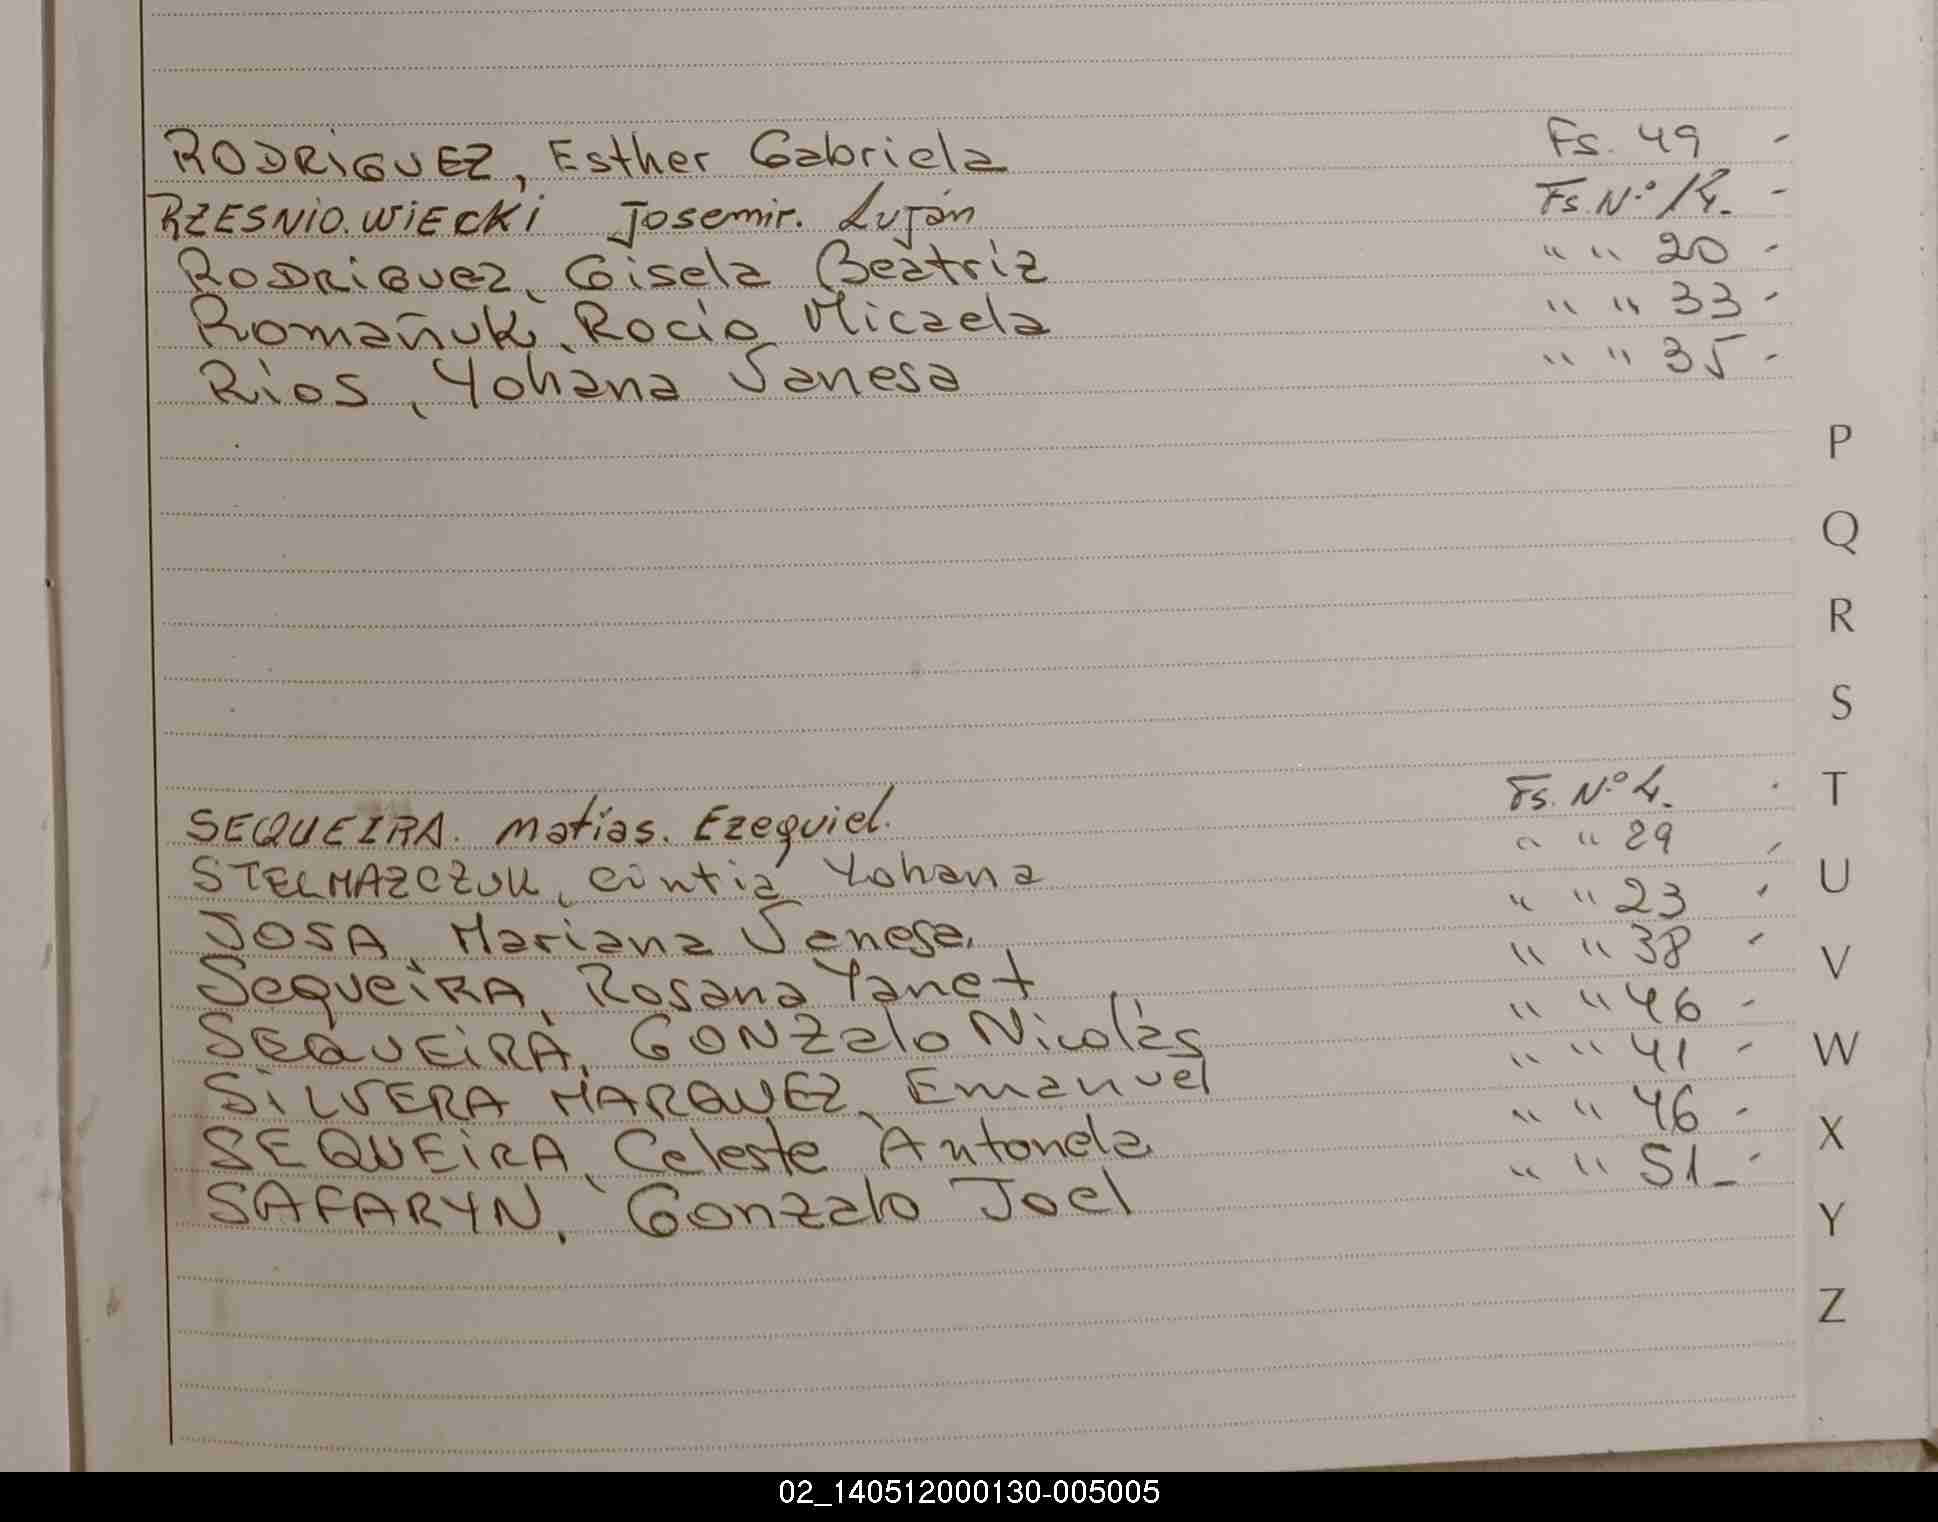 RODRIGUEZ, Esther Gabriela Fs. 49 -
RZESNIO.WIECKI Josemir. Luján Fs. Nº 14. -
RODRIGUEZ, Gisela Beatriz " " 20 -
Romañuk, Rocio Micaela " " 33 -
Rios, Yohana Vanesa " " 35 -
P
Q
R
S
T
U
V
W
X
Y
Z
SEQUEIRA. Matias. Ezequiel. Fs. Nº 4. -
STELMAZCZUK, Cintia Yohana " " 29 -
SOSA, Mariana Vanesa. " " 23 -
SequeiRA, Rosana Yanet " " 38 -
SEQUEIRA, GONZalo Nicolás " " 46 -
SILVERA MARQUEZ, Emanuel " " 41 -
SEQUEIRA, Celeste Antonela " " 46 -
SAFARYN, Gonzalo Joel " " 51 -
02_140512000130-005005